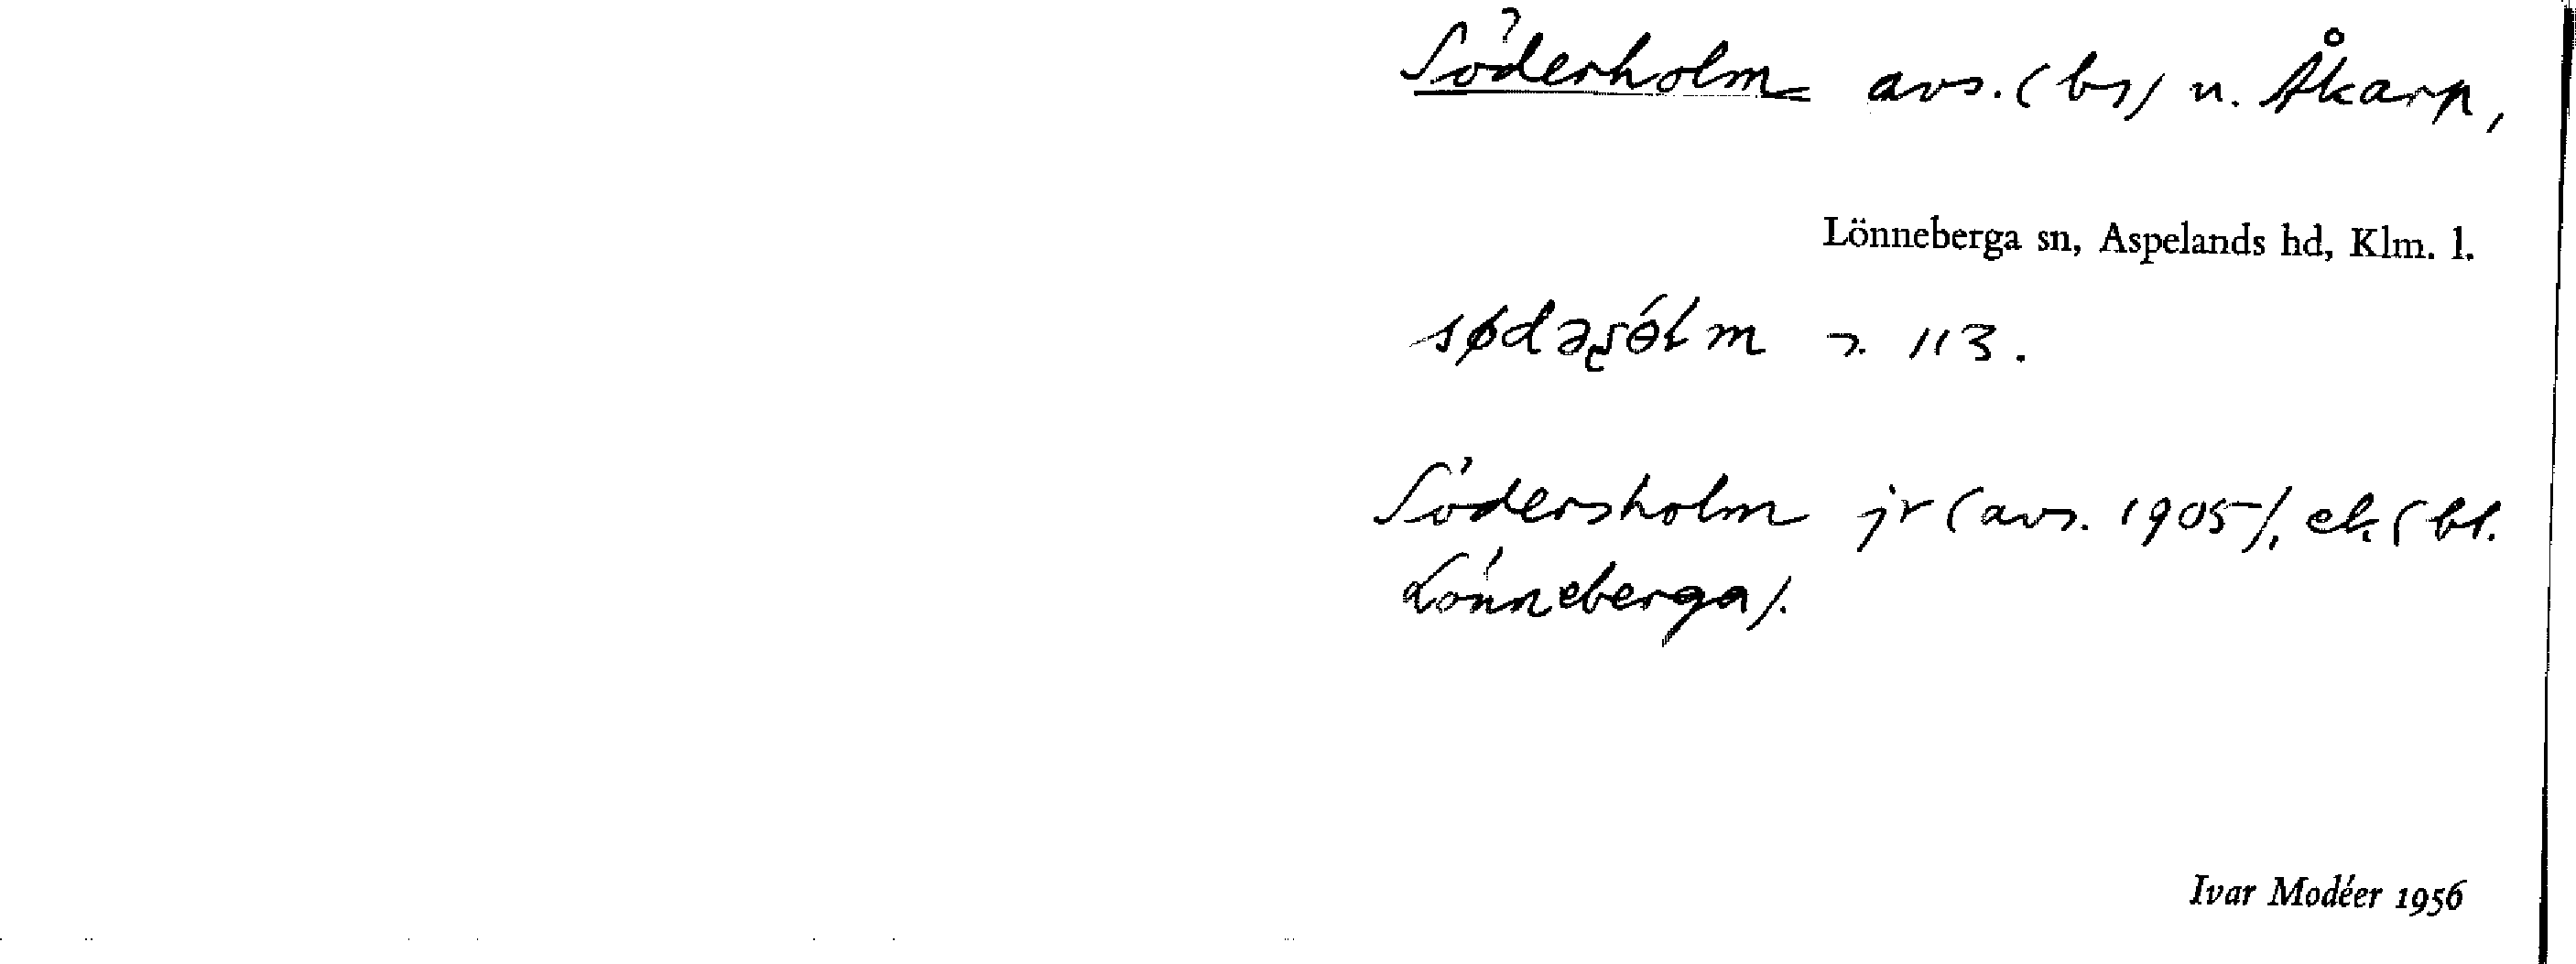 Söderholm avs. (bs) u. Åkarp,
Lönneberga sn, Aspelands hd, Klm. l.
113.
Södersholm jr (avs. 1905), ek. (bl.
Lönneberga).
Ivar Modéer 1956